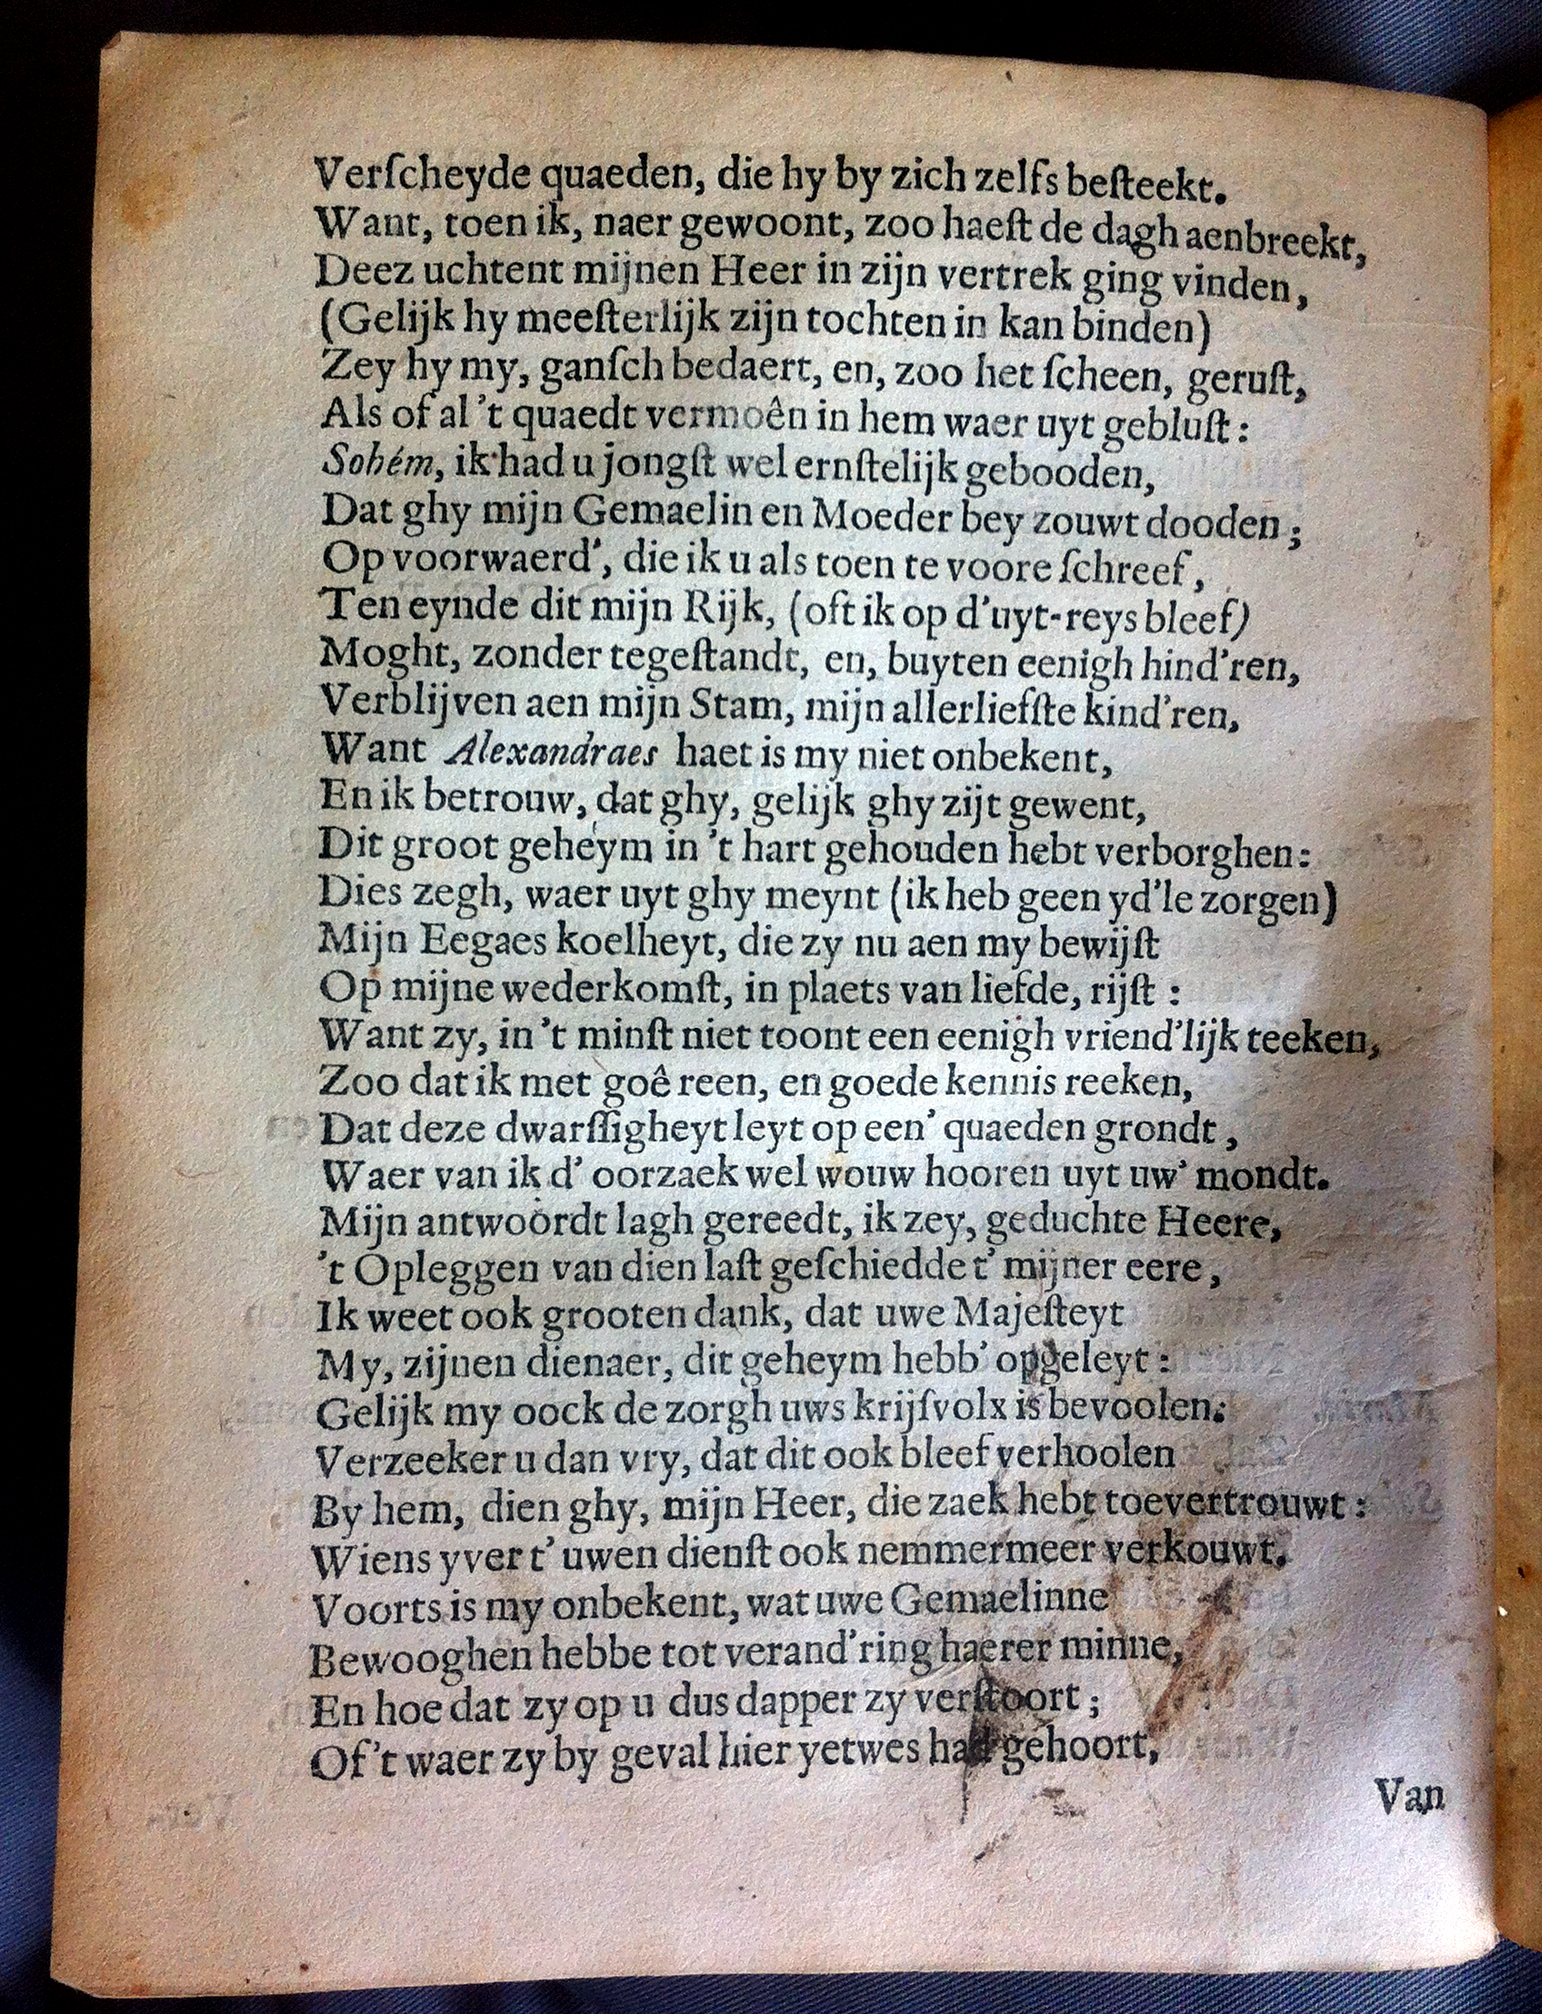 Verſcheyde quaeden, die hy by zich zelfs beſteekt.
Want, toen ik, naer gewoont, zoo haeſt de dagh aenbreekt,
Deez uchtent mijnen Heer in zijn vertrek ging vinden,
(Gelijk hy meeſterlijk zijn tochten in kan binden)
Zey hy my, ganſch bedaert, en, zoo het ſcheen, geruſt,
Als of al 't quaedt vermoên in hem waer uyt gebluſt:
Sohém, ik had u jongſt wel ernſtelijk gebooden,
Dat ghy mijn Gemaelin en Moeder bey zouwt dooden;
Op voorwaerd', die ik u als toen te voore ſchreef,
Ten eynde dit mijn Rijk, (oft ik op d'uyt-reys bleef)
Moght, zonder tegeſtandt, en, buyten eenigh hind'ren,
Verblijven aen mijn Stam, mijn allerliefſte kind'ren,
Want Alexandraes haet is my niet onbekent,
En ik betrouw, dat ghy, gelijk ghy zijt gewent,
Dit groot geheym in 't hart gehouden hebt verborghen:
Dies zegh, waer uyt ghy meynt (ik heb geen yd'le zorgen)
Mijn Eegaes koelheyt, die zy nu aen my bewijſt
Op mijne wederkomſt, in plaets van liefde, rijſt:
Want zy, in 't minſt niet toont een eenigh vriend'lijk teeken,
Zoo dat ik met goê reen, en goede kennis reeken,
Dat deze dwarſſigheyt leyt op een' quaeden grondt,
Waer van ik d' oorzaek wel wouw hooren uyt uw' mondt.
Mijn antwoordt lagh gereedt, ik zey, geduchte Heere,
't Opleggen van dien laſt geſchiedde t' mijner eere,
Ik weet ook grooten dank, dat uwe Majeſteyt
My, zijnen dienaer, dit geheym hebb' opgeleyt:
Gelijk my oock de zorgh uws krijſvolx is bevoolen:
Verzeeker u dan vry, dat dit ook bleef verhoolen
By hem, dien ghy, mijn Heer, die zaek hebt toevertrouwt:
Wiens yver t' uwen dienſt ook nemmermeer verkouwt.
Voorts is my onbekent, wat uwe Gemaelinne
Bewooghen hebbe tot verand'ring haerer minne,
En hoe dat zy op u dus dapper zy verſtoort;
Of 't waer zy by geval hier yetwes had gehoort,
Van